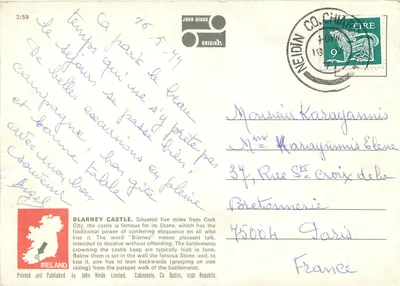 2/58
JOHN HINDE
ORIGINAL
NEIDÍN CO. CHIARRAÍ
ÉIRE
9
16-5-77
À part le beau
temps qui ne s'y prête pas
le séjour se passe bien.
De belles excursions en pleine
campagne, bon gîte
et bonne table
avec mon bon
souvenir
Monsieur Karayannis
Mme Karayannis Elene
37, Rue Ste Croix de la
Bretonnerie
75004 Paris
France
BLARNEY CASTLE. Situated five miles from Cork
City, the castle is famous for its Stone, which has the
traditional power of conferring eloquence on all who
kiss it. The word "Blarney" means pleasant talk,
intended to deceive without offending. The battlements
crowning the castle keep are typically Irish in form.
Below them is set in the wall the famous Stone, and, to
kiss it, one has to lean backwards (grasping on iron
railing) from the parapet walk of the battlements.
IRELAND
Printed and Published by John Hinde Limited, Cabinteely, Co. Dublin, Irish Republic.